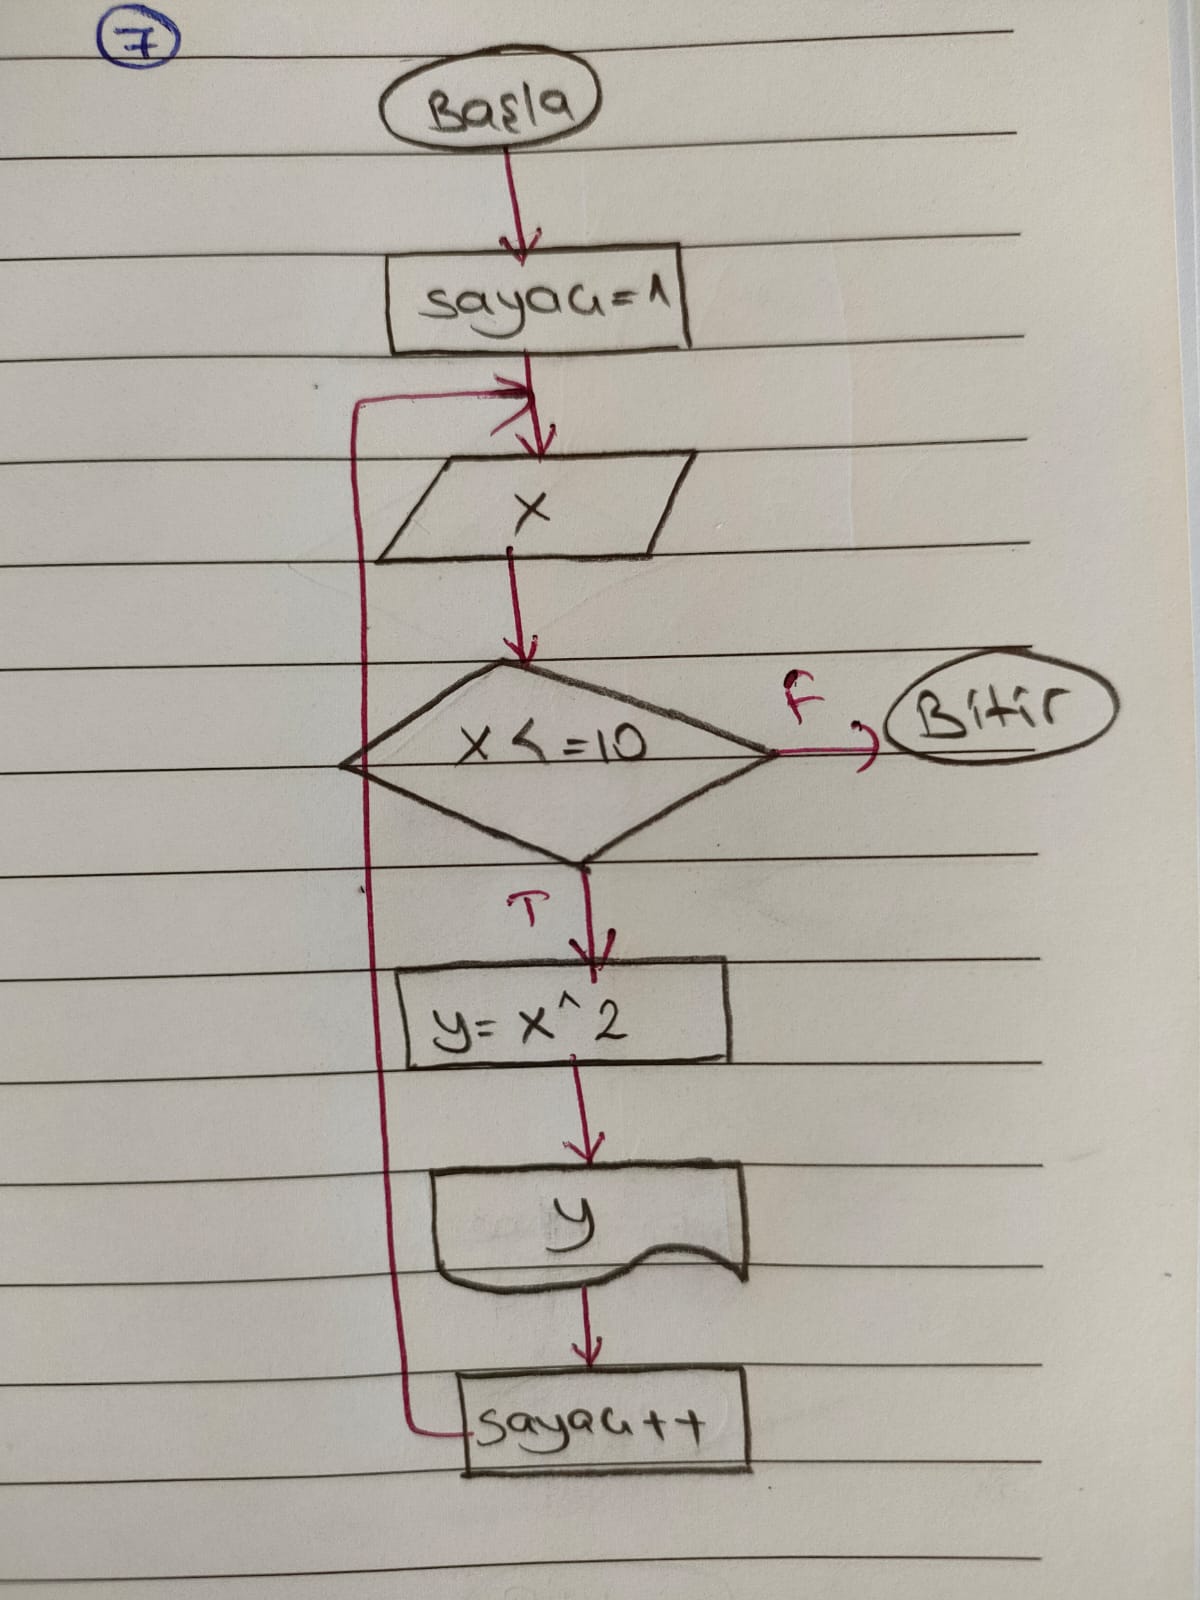 7
Başla
sayaç=1
x
x<=10
F
Bitir
T
y=x^2
y
sayaç++